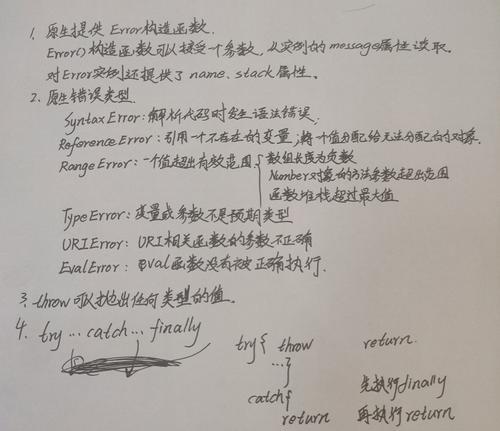 1. 原生提供 Error构造函数.
Error()构造函数可以接受一个参数, 从实例的message属性读取.
对Error实例还提供了 name、stack 属性。
2. 原生错误类型.
SyntaxError:解析代码时发生语法错误.
ReferenceError:引用一个不存在的变量;将个值分配给无法分配的对象.
RangeError:一个值超出有效范围. { 数组长度为负数
Number对象的方法参数超出范围
函数堆栈超过最大值
TypeError:变量或参数不是预期类型
URIError:URI相关函数的参数不正确
EvalError:eval函数没有被正确执行.
3. throw可以抛出任何类型的值.
4. try…catch…finally
try{ throw return.
…}
catch{ 先执行finally
return 再执行return